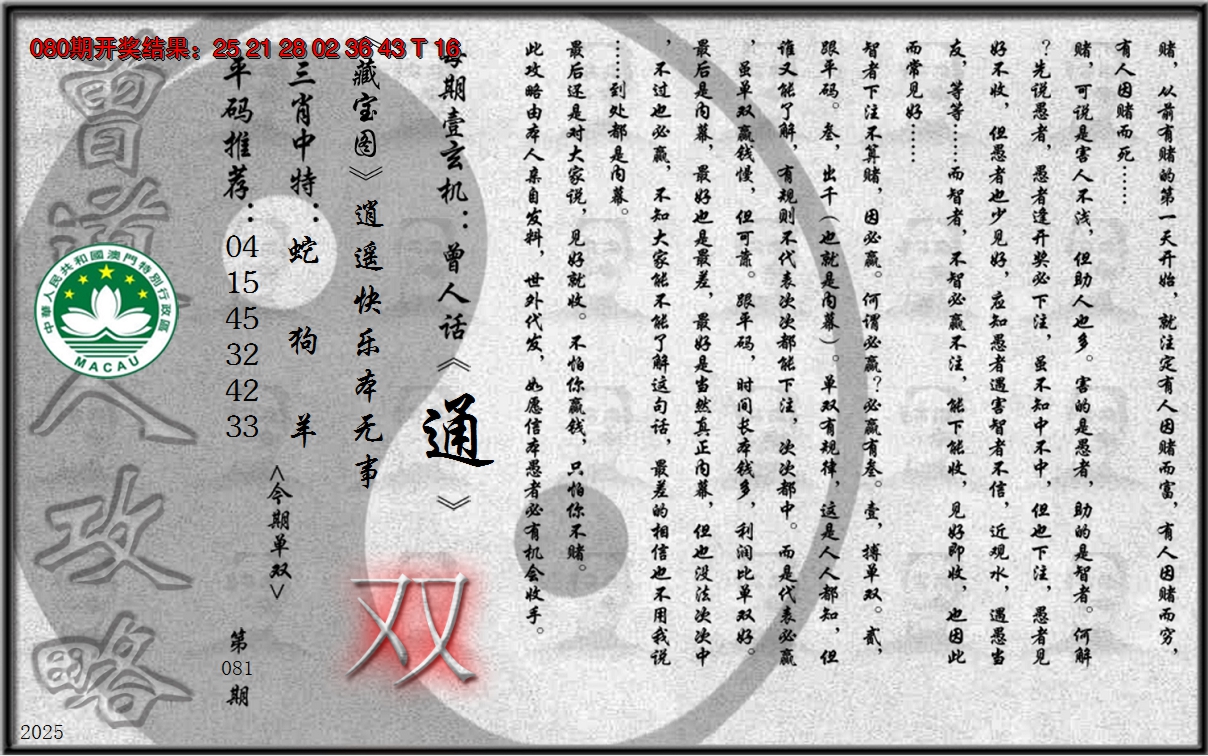 080期开奖结果：25 21 28 02 36 43 T 16
赌，从前有赌的第一天开始，就注定有人因赌而富，有人因赌而穷，
有人因赌而死……
赌，可说是害人不浅，但助人也多。害的是愚者，助的是智者。何解
？先说愚者，愚者逢开奖必下注，虽不知中不中，但也下注，愚者见
好不收，但愚者也少见好，应知愚者遇害智者不信，近观水，遇愚当
友，等等……而智者，不智必赢不注，能下能收，见好即收，也因此
而常见好……
智者下注不算赌，因必赢。何谓必赢？必赢有叁。壹，搏单双。贰，
跟平码。叁，出千（也就是内幕）。单双有规律，这是人人都知，但
谁又能了解，有规则不代表次次都能下注，次次都中。而是代表必赢
，虽单双赢钱慢，但可靠。跟平码，时间长本钱多，利润比单双好。
最后是内幕，最好也是最差，最好是当然真正内幕，但也没法次次中
，不过也必赢，不知大家能不能了解这句话，最差的相信也不用我说
……到处都是内幕。
最后还是对大家说，见好就收。不怕你赢钱，只怕你不赌。
此攻略由本人亲自发料，世外代发，如愿信本愚者必有机会收手。
每期壹玄机：曾人话《通》
《藏宝图》逍遥快乐本无事
三肖中特：蛇 狗 羊
<今期单双>
双
平码推荐：
04
15
45
32
42
33
第
081
期
曾道人攻略
中華人民共和國澳門特別行政區
MACAU
2025